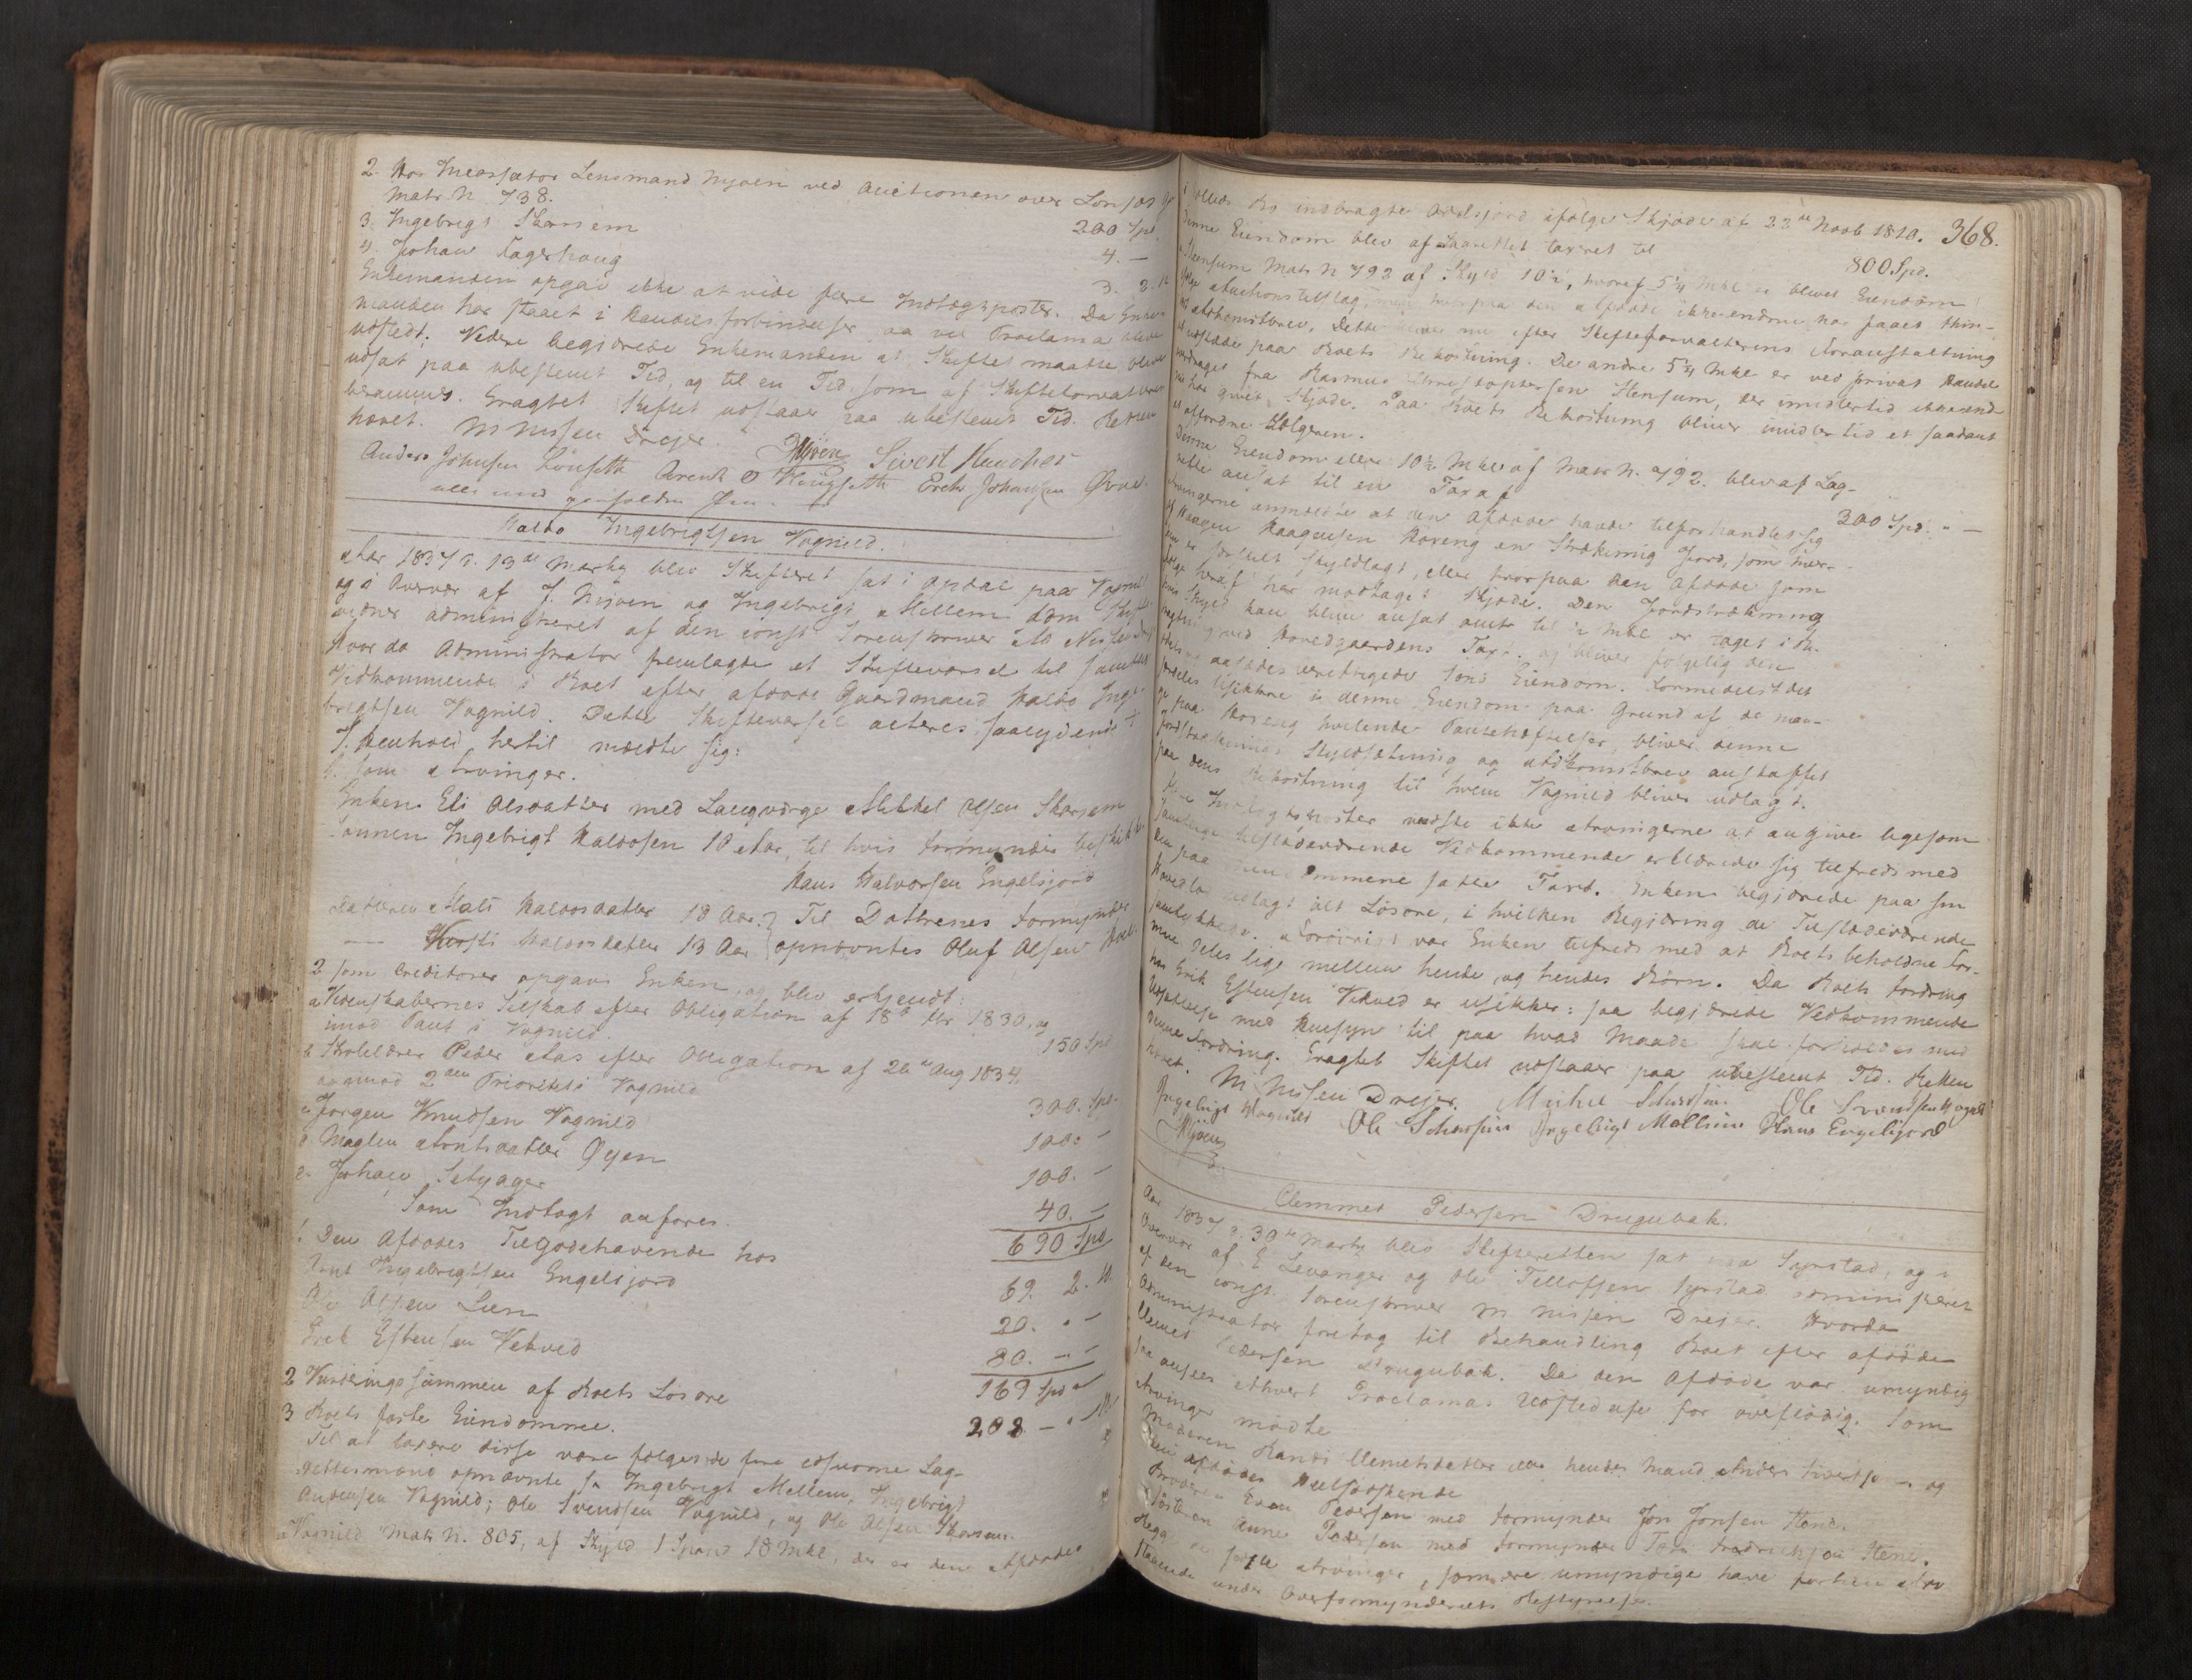 2. Hos Incassator Lensmand Mjøen ved Auctionen over Lonset
Matr N 738. 200 Spd.
3. Ingebrigt Skarsem 4. —
4. Johan Fagerhaug 3. 3.
Enkemanden opgav ikke at vide flere Indtægtsposter. Da Enke-
manden har staaet i Handelsforbindelser, vil Proclama blive
udstedt. Videre begjærede Enkemanden at Skiftet maatte blive
udsat paa ubestemt Tid, og til en Tid som af Skifteforvalteren
berammes. Eragtet Skiftet udstaar paa ubestemt Tid. Retten
hævet. M Nissen Drejer. Mjøen Sivert
Anders Johnsen Lönseth Arent O Haugseth Erik Johansen
alle med paaholden Pen.
Haldo Ingebrigtsen Vognild.
Aar 1837 d. 13de Marty blev Skifteret sat i Opdal paa Vognild
og i Overvær af J. Mjøen og Ingebrigt Mellem som Skifte-
vidner administreret af den const Sorenskriver M Nissen Drejer
Hvor da Administrator fremlagde et Skiftevarsel til samtlige
Vedkommende i Boet efter afdøde Gaardmand Haldo Inge-
brigtsen Vognild. Dette Skiftevarsel acteres saalydende +
I Henhold hertil mældte sig:
1. som Arvinger.
Enken Eli Olsdatter med Laugværge Mikkel Olsen Skarsem
Sønnen Ingebrigt Haldosen 10 Aar, til hvis Formynder beskikkedes
Hans Halvorsen Engelsjord
Datteren Mali Haldosdatter 18 Aar. } Til Døttrenes Formynder
— Kirsti Haldosdatter 13 Aar } opnævntes Oluf Olsen
2. som Creditorer opgav Enken, og blev erkjendt:
a Videnskabernes Selskab efter Obligation af 18de 1830, og
imod Pant i Vognild. 150 Spd
b Skolelærer Peder Aas efter Obligation af 26de Aug 1834
og imod 2den Prioritet i Vognild 300. Spd.
c Jørgen Knudsen Vognild 100. —
d Maglen Arntsdatter Øyen 100. —
e. Johan Sætyager 40. —
690 Spd
Som Indtægt anføres.
1. Den Afdødes Tilgodehavende hos
Arnt Ingebrigtsen Engelsjord 69. 2. 10.
Ole Olsen Lien 20. " —
Erik Estensen Vekved 80. — —
169 Spd
2 Vurderingssummen af Boets Løsøre 208 —
3 Boets faste Eiendomme.
Til at taxere disse vare følgende fire edsvorne Lag-
rettesmænd opnævnte Ingebrigt Mellem, Ingebrigt
Andersen Vognild; Ole Svendsen Vognild, og Ole Olsen Skarsem.
a Vognild Matr N. 805, af Skyld 1 Spand 18 Mkl, der er den Afdødes
368.
i Fælles Bo indbragte Odelsjord ifølge Skjøde af 22de Novb 1820.
Denne Eiendom blev af Laugrettet taxeret til 800 Spd.
Stensum Matr N 792 af Skyld 10½, hvoraf 5¼ Mkl er blevet Eiendom
ifølge Auctionstilslag, men hvorpaa den Afdøde ikke endnu har faaet thin-
læst Adkomstbrev. Dette bliver nu efter Skifteforvalterens Foranstaltning
at udstæde paa Boets Bekostning. De andre 5¼ Mkl er ved privat Handel
overdraget fra Rasmus Christophersen Stensum, der imidlertid ikke end-
nu har givet Skjøde. Paa Boets Bekostning bliver imidlertid et saadant
at affordre Sælgeren.
Denne Eiendom eller 10½ Mkl af Matr N. 792. blev af Lag-
rette ansat til en Taxt 300 Spd. " —
Arvingerne anmældte at den Afdøde havde tilforhandlet sig
af Haagen Haagensen Horeng en Strækning Jord, som hver-
ken er særskilt skyldlagt, eller hvorpaa den Afdøde som
følge heraf har modtaget Skjøde. Den Jordstrækning
hvis Skyld kan blive ansat omtr til ½ Mkl er taget i Be-
tragtning ved Hovedgaardens Taxt, og bliver følgelig den
aasædesberettigede Søns Eiendom. Formedelst det
saaledes Usikkre i denne Eiendom paa Grund af de man-
ge paa Horeng hvilende Pantehæftelser, bliver denne
Jordstræknings Skyldsætning og Adkomstbrev anskaffet
paa dens Bekostning til hvem Vognild bliver udlagt.
Flere Indtægtsposter vidste ikke Arvingerne at angive ligesom
samtlige tilstædeværende Vedkommende erklærede sig tilfreds med
den paa Eiendommene satte Taxt. Enken begjærede paa sin
Hovedlod udlagt alt Løsøre, i hvilken Begjæring de Tilstædeværende
samtykkede. Forøvrigt var Enken tilfreds med at Boets beholdne For-
mue deles lige mellem hende og hendes Børn. Da Boets Fordring
hos Erik Estensen Vekved er usikker: saa begjærede Vedkommende
Udsættelse med Hensyn til paa hvad Maade skal forholdes med
denne Fordring. Eragtet Skiftet udstaaer paa ubestemt Tid. Retten
hævet. M Nissen Drejer. Ole Svendsen Vognild
Ingebrigt Wognild Ole Ingebrigt Mellem Hans Engelsjord
Mjøen
Clemmet Pedersen Drugubak.
Aar 1837 d. 30te Marty blev Skifteretten sat paa Syrstad, og i
Overvær af E Levanger og Ole Tellefsen Syrstad administreret
af den const. Sorenskriver M Nissen Drejer. Hvorda
Administrator foretog til Behandling Boet efter afdøde
Clemet Pedersen Drugubak. Da den Afdøde var umyndig
saa ansees ethvert Proclamas Udstedelse for overflødig. Som
Arvinger mødte
Moderen Randi Clemetsdatter hendes Mand Anders Sivertsen og
den afdødes Heelsødskende
Broderen Even Pedersen med Formynder Jon Jonsen Stene.
Søsteren Anne Pedersen med Formynder Tore Fredriksen Stene.
Begge de sidste Arvinger, som ere umyndige have forhen Arv
staaende under Overformynderiets Bestyrelse.